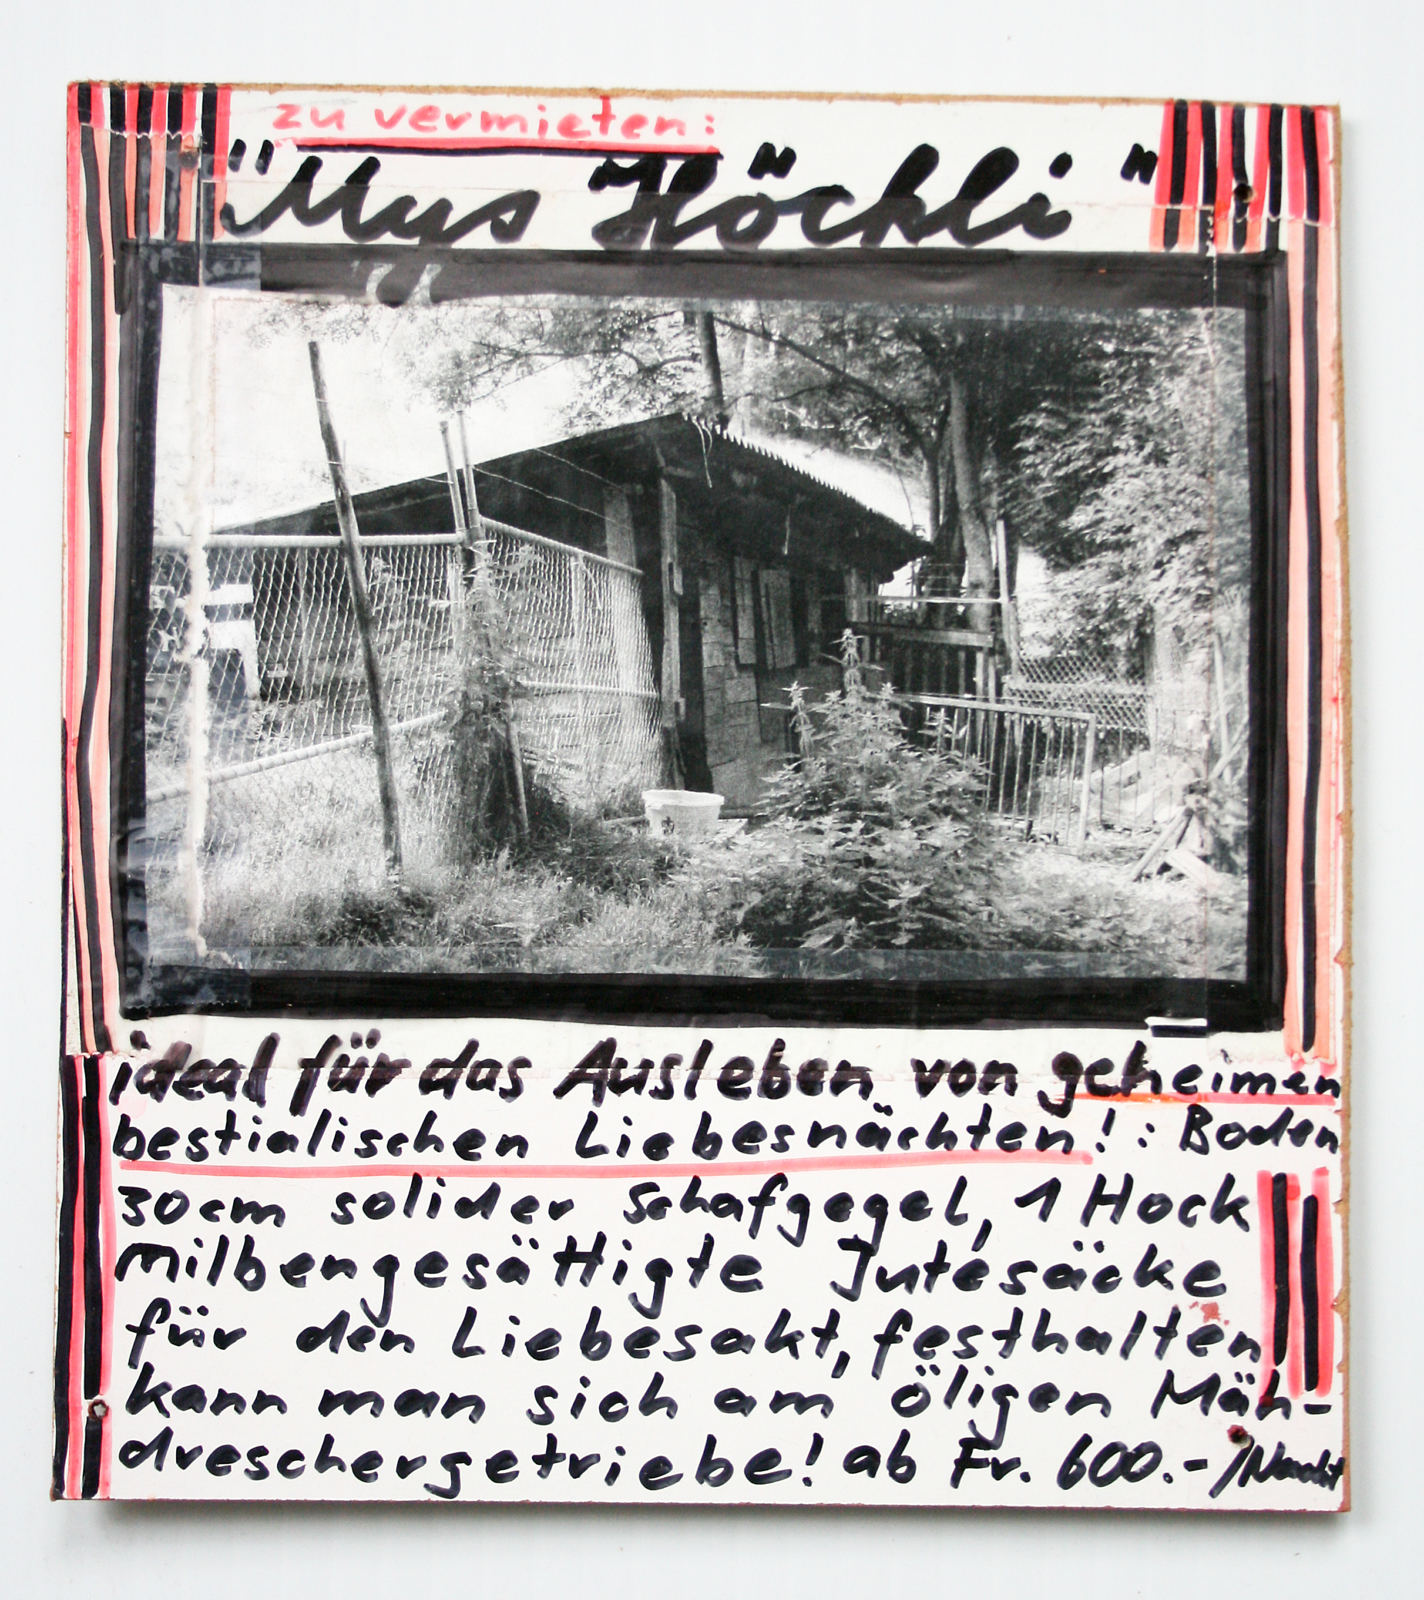 zu vermieten:
"Mys Höckli"
ideal für das Ausleben von geheimen
bestialischen Liebesnächten! : Boden
30cm solider Schafgegel, 1 Hock
milbengesättigte Jutesäcke
für den Liebesakt, festhalten
kann man sich am öligen Mäh-
dreschergetriebe! ab Fr. 600.-/Nacht